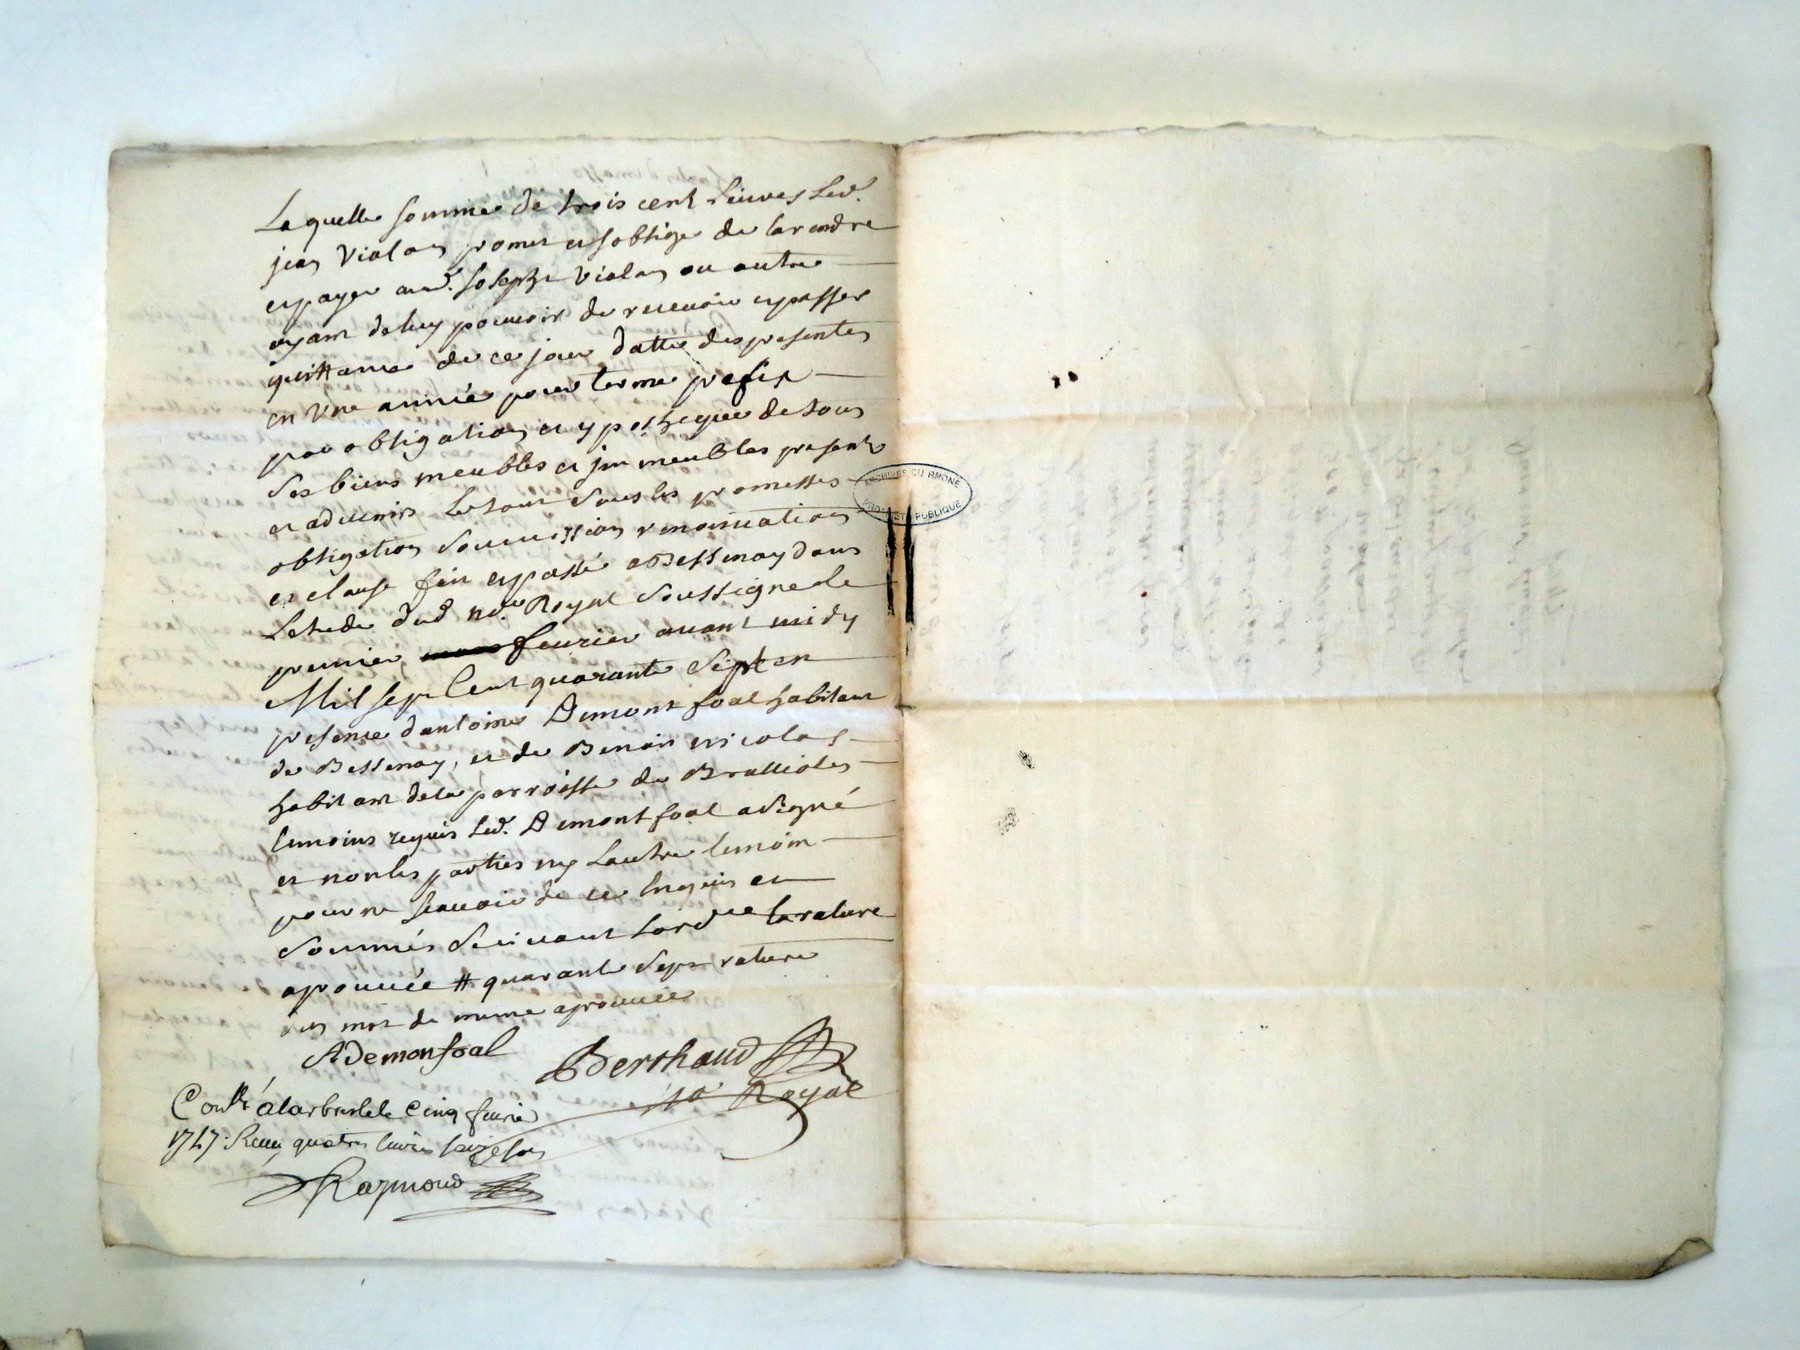 Laquelle somme de trois cent livres Led.
jean Vialon promet et soblige de la rendre
et payer aud. Joseph Vialon ou autre
ayant de luy pouvoir de recevoir et passer
quittance de ce jour datte des presentes
en Une année pour terme prefix
par obligation et ypothèque de tous
ses biens meubles et jmmeubles presents
et advenir Le tout sous les promesses
obligation soumission renonciation
et clause fait et passé a Bessenay dans
Letude dud no.re Royal soussigne le
premier fevrier avant midy
Mil sept Cent quarante sept en
presence dantoine Demontfoal habitant
de Bessenay, et de Benoit nicolas
habitant de la parroisse de Brullioles
temoins requis Led. Demontfoal a signé
et non les parties ny Lautre temoin
pour ne scavoir de ce Enquis et
sommés suivant Lord.ce la rature
aprouvée # quarante sept rature
un mot de meme aprouvée
ADemonfoal
Berthaud
no.re Royal
Con.lé a Larbresle le Cinq fevrier
1747. Receu quatre livres seize sols
Raymond
ARCHIVES DU RHONE
PROPRIETE PUBLIQUE